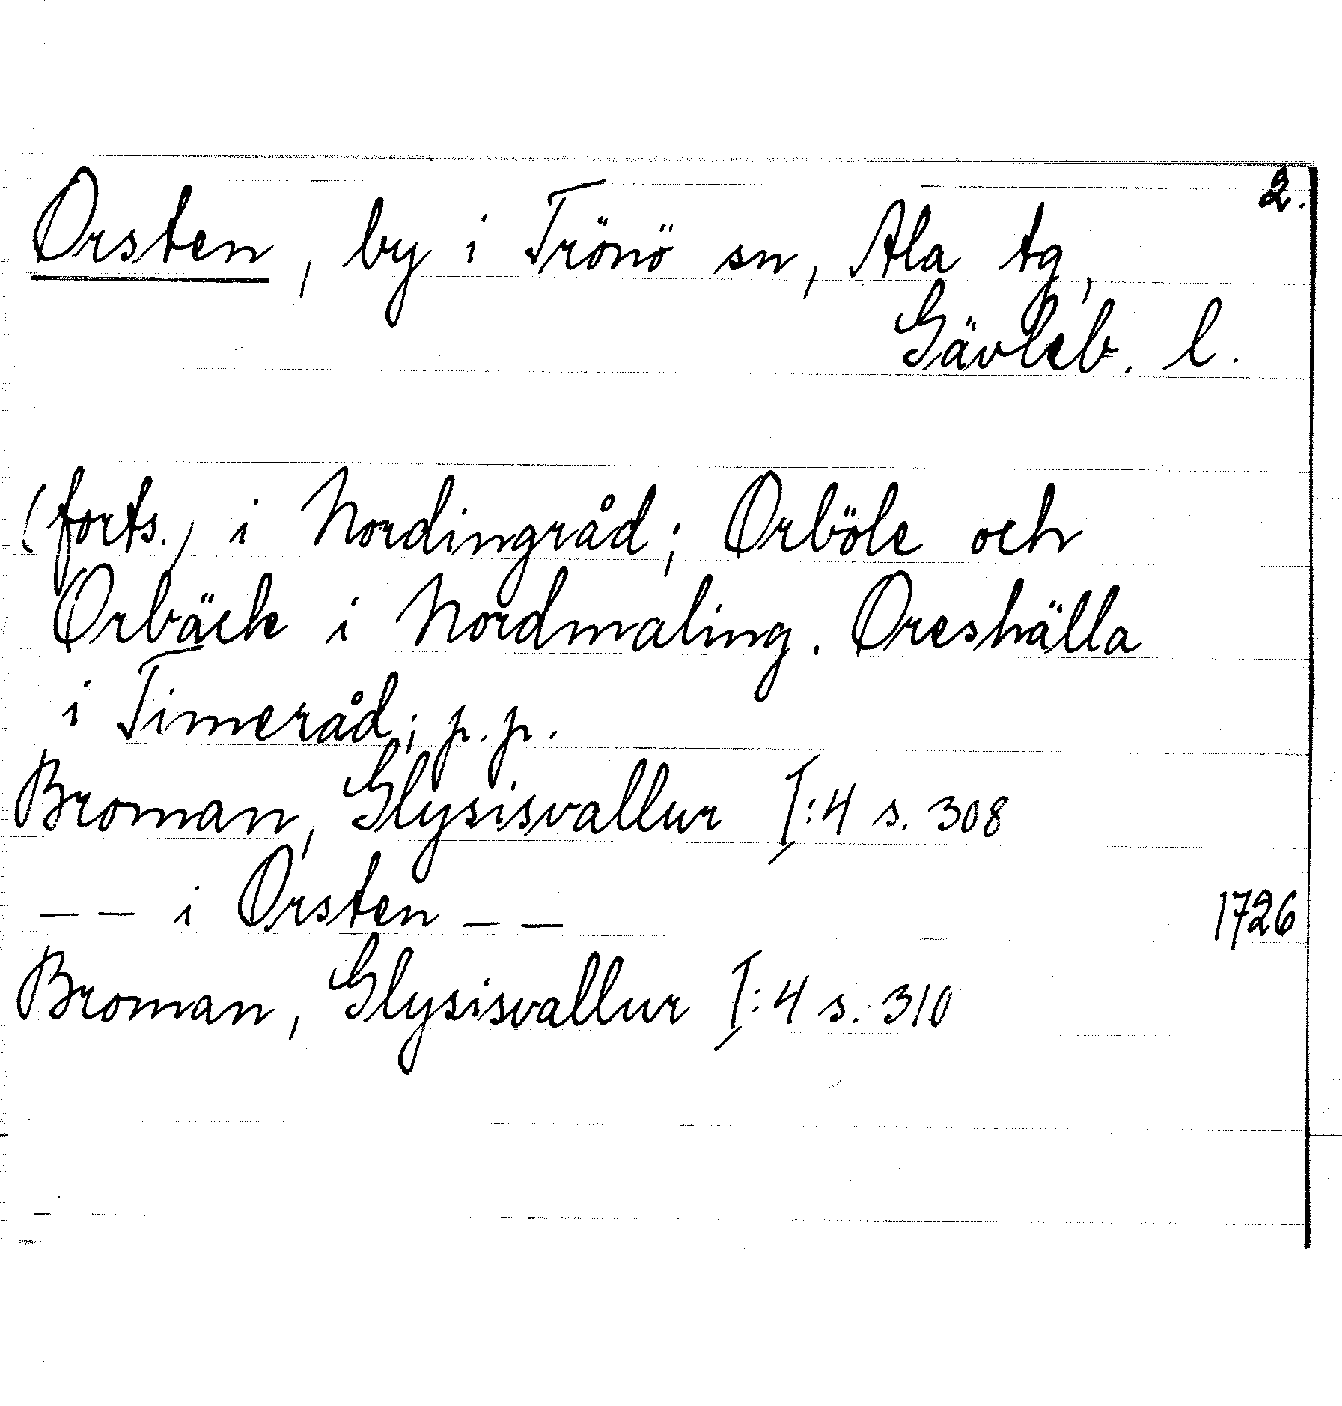 2.
Orsten, by i Trönö sn, Ala tg,
Gävleb. l.
(forts.) i Nordingråd; Orböle och
Orbäck i Nordmaling. Oreshälla
i Timeråd; p. p.
Broman, Glysisvallur I:4 s. 308
– – i Orsten – – 1726
Broman, Glysisvallur I:4 s. 310